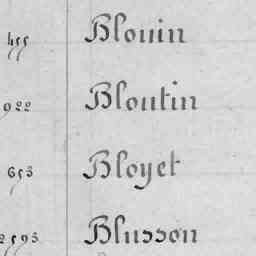 455 Blouin
922 Bloutin
653 Bloyet
2595 Blusson